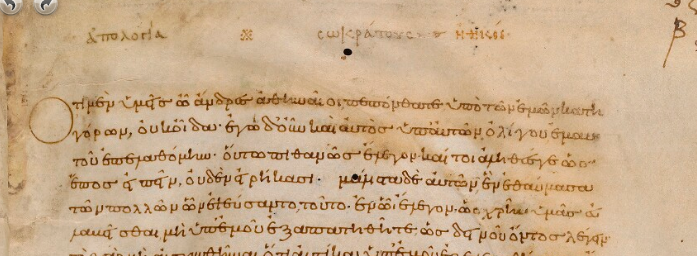 ἀπολογία σωκράτους ἠθικός
Ὅτι μὲν ὑμεῖς ὦ ἄνδρες ἀθηναῖοι πεπόνθατε ὑπὸ τῶν ἐμῶν κατη
γόρων, οὐκ οἶδα· ἐγὼ δ' οὖν καὶ αὐτὸς ὑπ' αὐτῶν ὀλίγου ἐμαυ
τοῦ ἐπελαθόμην· οὕτω πιθανῶς ἔλεγον καί τοι ἀληθές γε ὡς
ἔπος εἰπεῖν, οὐδὲν εἰρήκασι· μάλιστα δὲ αὐτῶν ἓν ἐθαύμασα
τῶν πολλῶν ὧν ἐψεύσαντο, τοῦτο· ἐν ᾧ ἔλεγον ὡς χρὴ ὑμᾶς εὐ
λαβεῖσθαι μὴ ὑπ' ἐμοῦ ἐξαπατηθῆτε, ὡς δεινοῦ ὄντος λέγειν